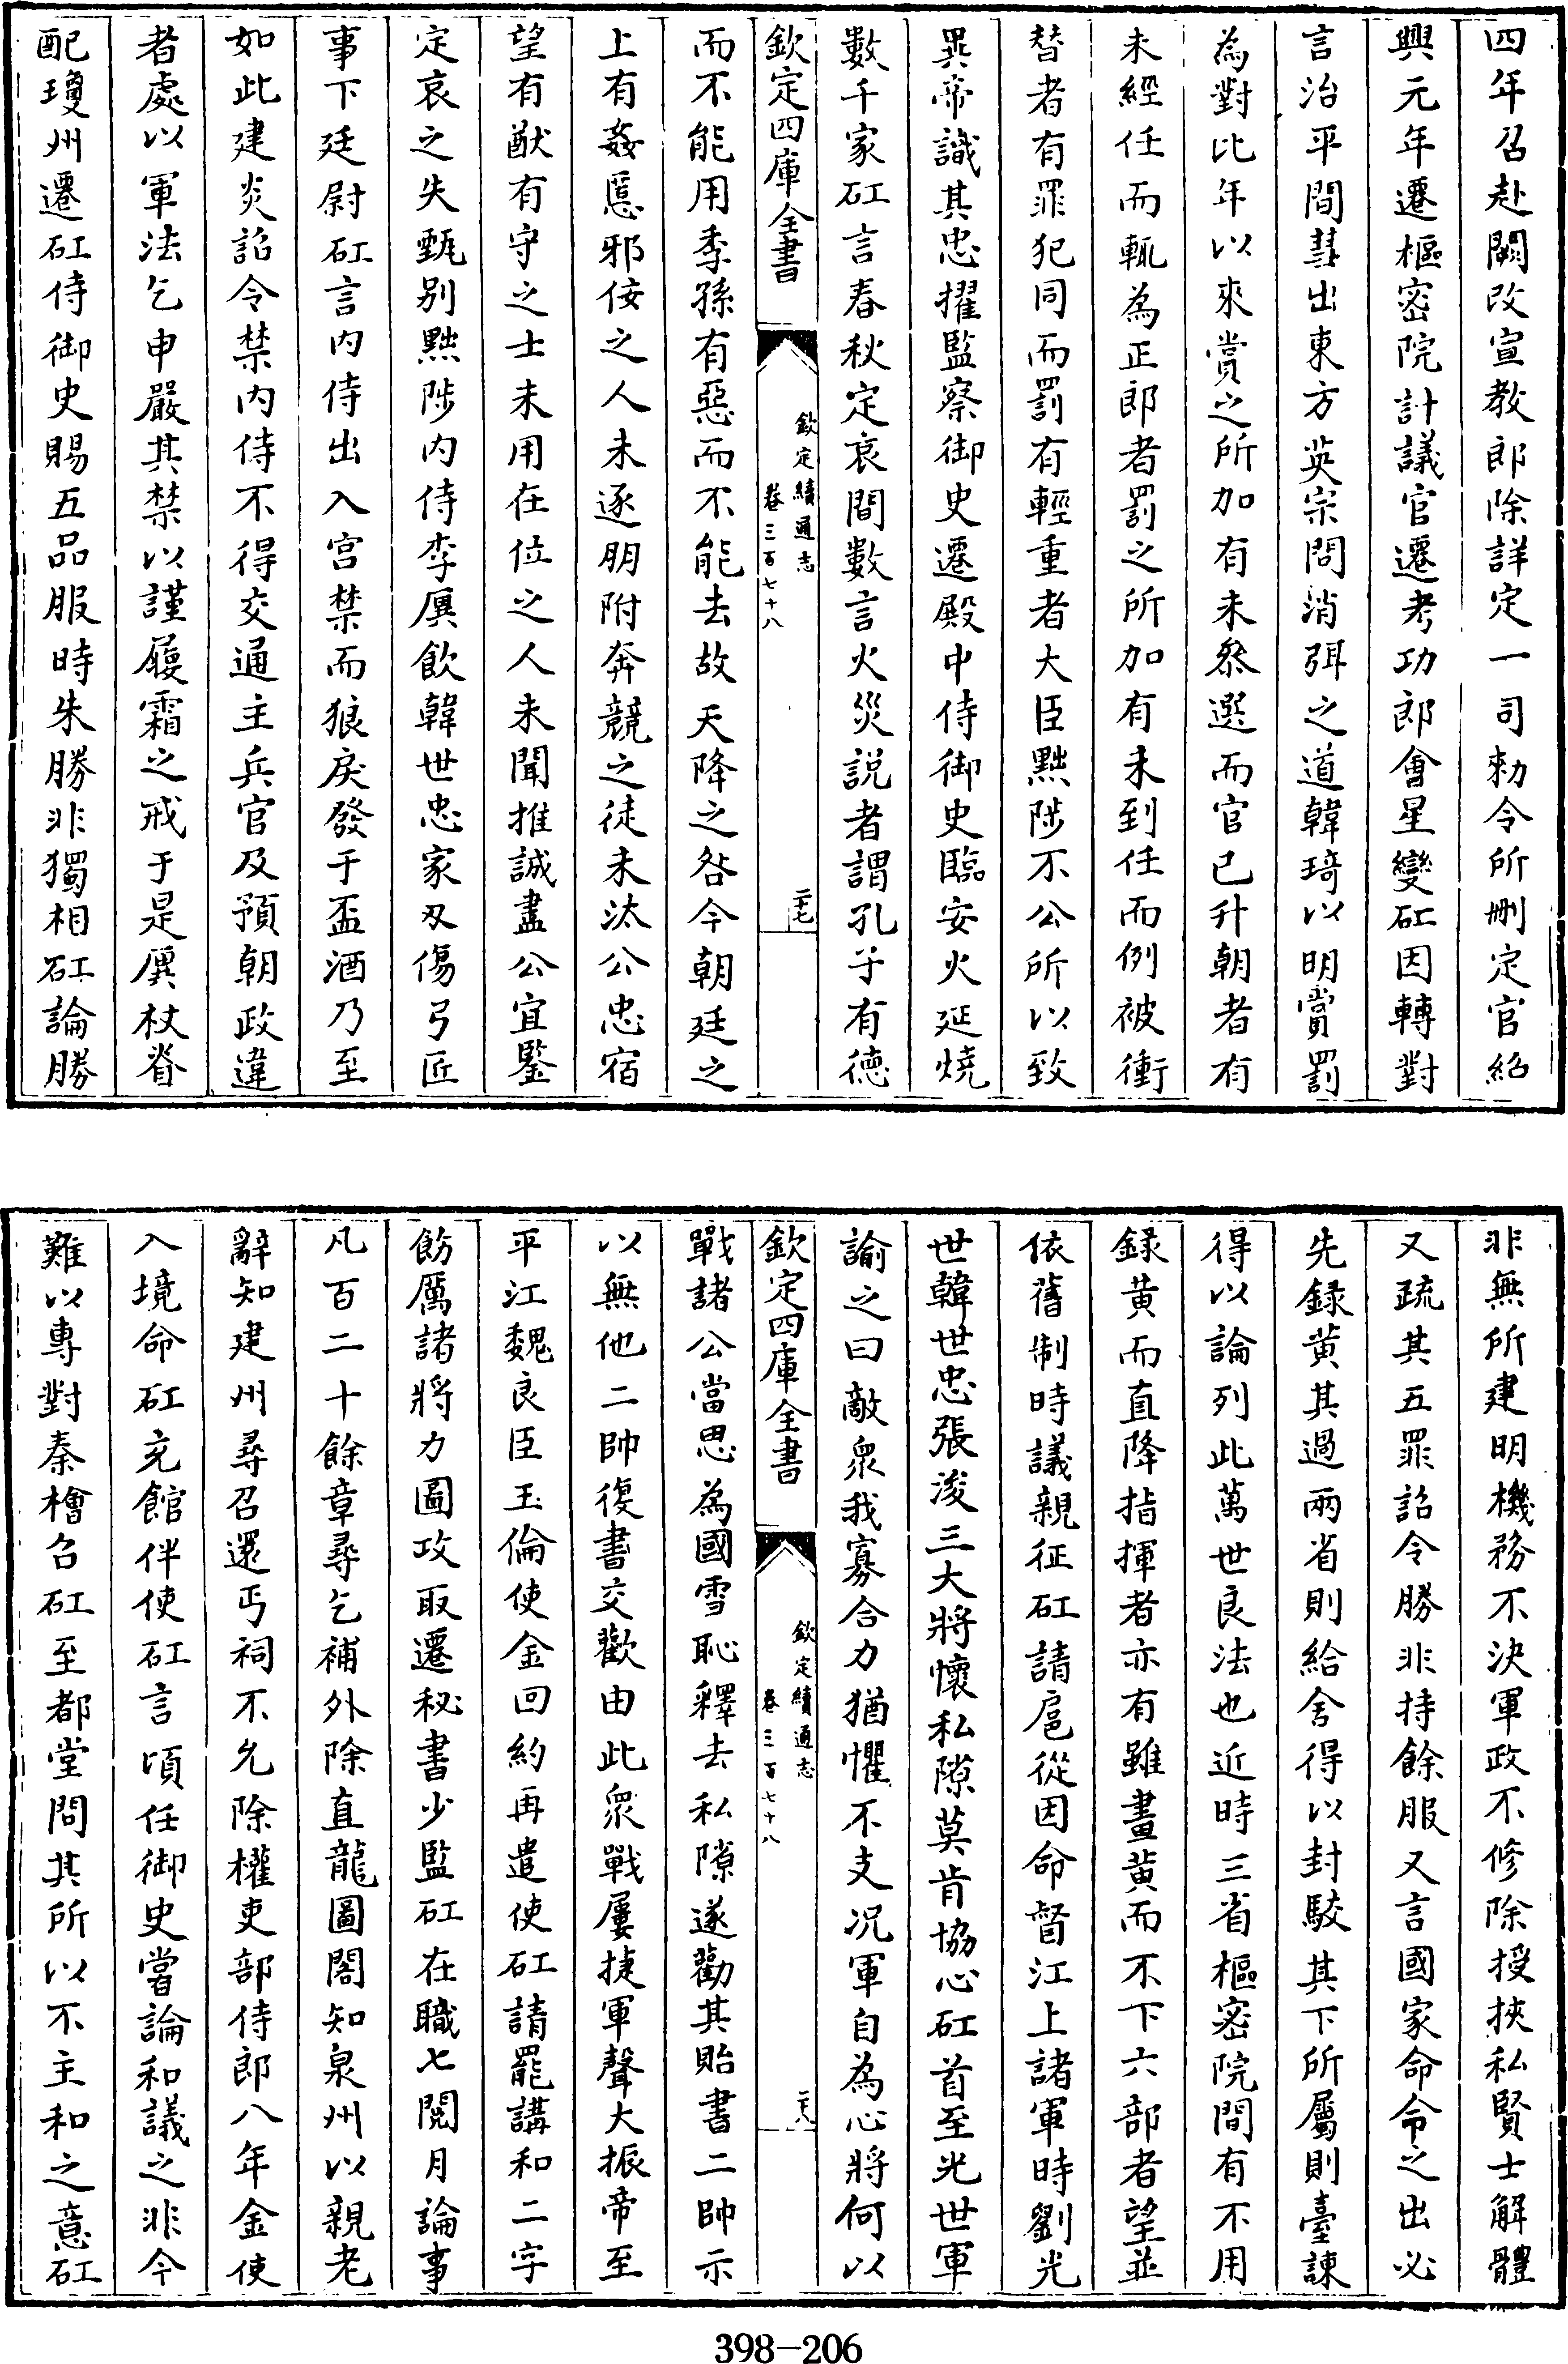 四年召赴闕改宣教郎除詳定一司勅令所刪定官紹
興元年遷樞密院計議官遷考功郎會星變矼因轉對
言治平間彗出東方英宗問消弭之道韓琦以明賞罰
為對比年以來賞之所加有未叅選而官已升朝者有
未經任而輒為正郎者罰之所加有未到任而例被衝
替者有罪犯同而罰有輕重者大臣黜陟不公所以致
異帝識其忠擢監察御史遷殿中侍御史臨安火延燒
數千家矼言春秋定哀間數言火災説者謂孔子有德
欽定四庫全書
欽定續通志
卷三百七十八
二十七
而不能用季孫有惡而不能去故天降之咎今朝廷之
上有姦慝邪佞之人未逐朋附奔競之徒未汰公忠宿
望有猷有守之士未用在位之人未聞推誠盡公宜鑒
定哀之失甄别黜陟内侍李廙飲韓世忠家刄傷弓匠
事下廷尉矼言内侍出入宫禁而狼戾發于盃酒乃至
如此建炎詔令禁内侍不得交通主兵官及預朝政違
者處以軍法乞申嚴其禁以謹履霜之戒于是廙杖脊
配瓊州遷矼侍御史賜五品服時朱勝非獨相矼論勝
非無所建明機務不決軍政不修除授挾私賢士解體
又疏其五罪詔令勝非持餘服又言國家命令之出必
先録黄其過兩省則給舍得以封駮其下所屬則臺諫
得以論列此萬世良法也近時三省樞密院間有不用
録黄而直降指揮者亦有雖畫黄而不下六部者望並
依舊制時議親征矼請扈從因命督江上諸軍時劉光
世韓世忠張浚三大將懷私隙莫肯協心矼首至光世軍
諭之曰敵衆我寡合力猶懼不支况軍自為心將何以
欽定四庫全書
欽定續通志
卷三百七十八
二十八
戰諸公當思為國雪恥釋去私隙遂勸其貽書二帥示
以無他二帥復書交歡由此衆戰屢捷軍聲大振帝至
平江魏良臣王倫使金回約再遣使矼請罷講和二字
飭厲諸將力圖攻取遷秘書少監矼在職七閲月論事
凡百二十餘章尋乞補外除直龍圖閣知泉州以親老
辭知建州尋召還丐祠不允除權吏部侍郎八年金使
入境命矼充館伴使矼言頃任御史嘗論和議之非今
難以專對秦檜召矼至都堂問其所以不主和之意矼
398-206